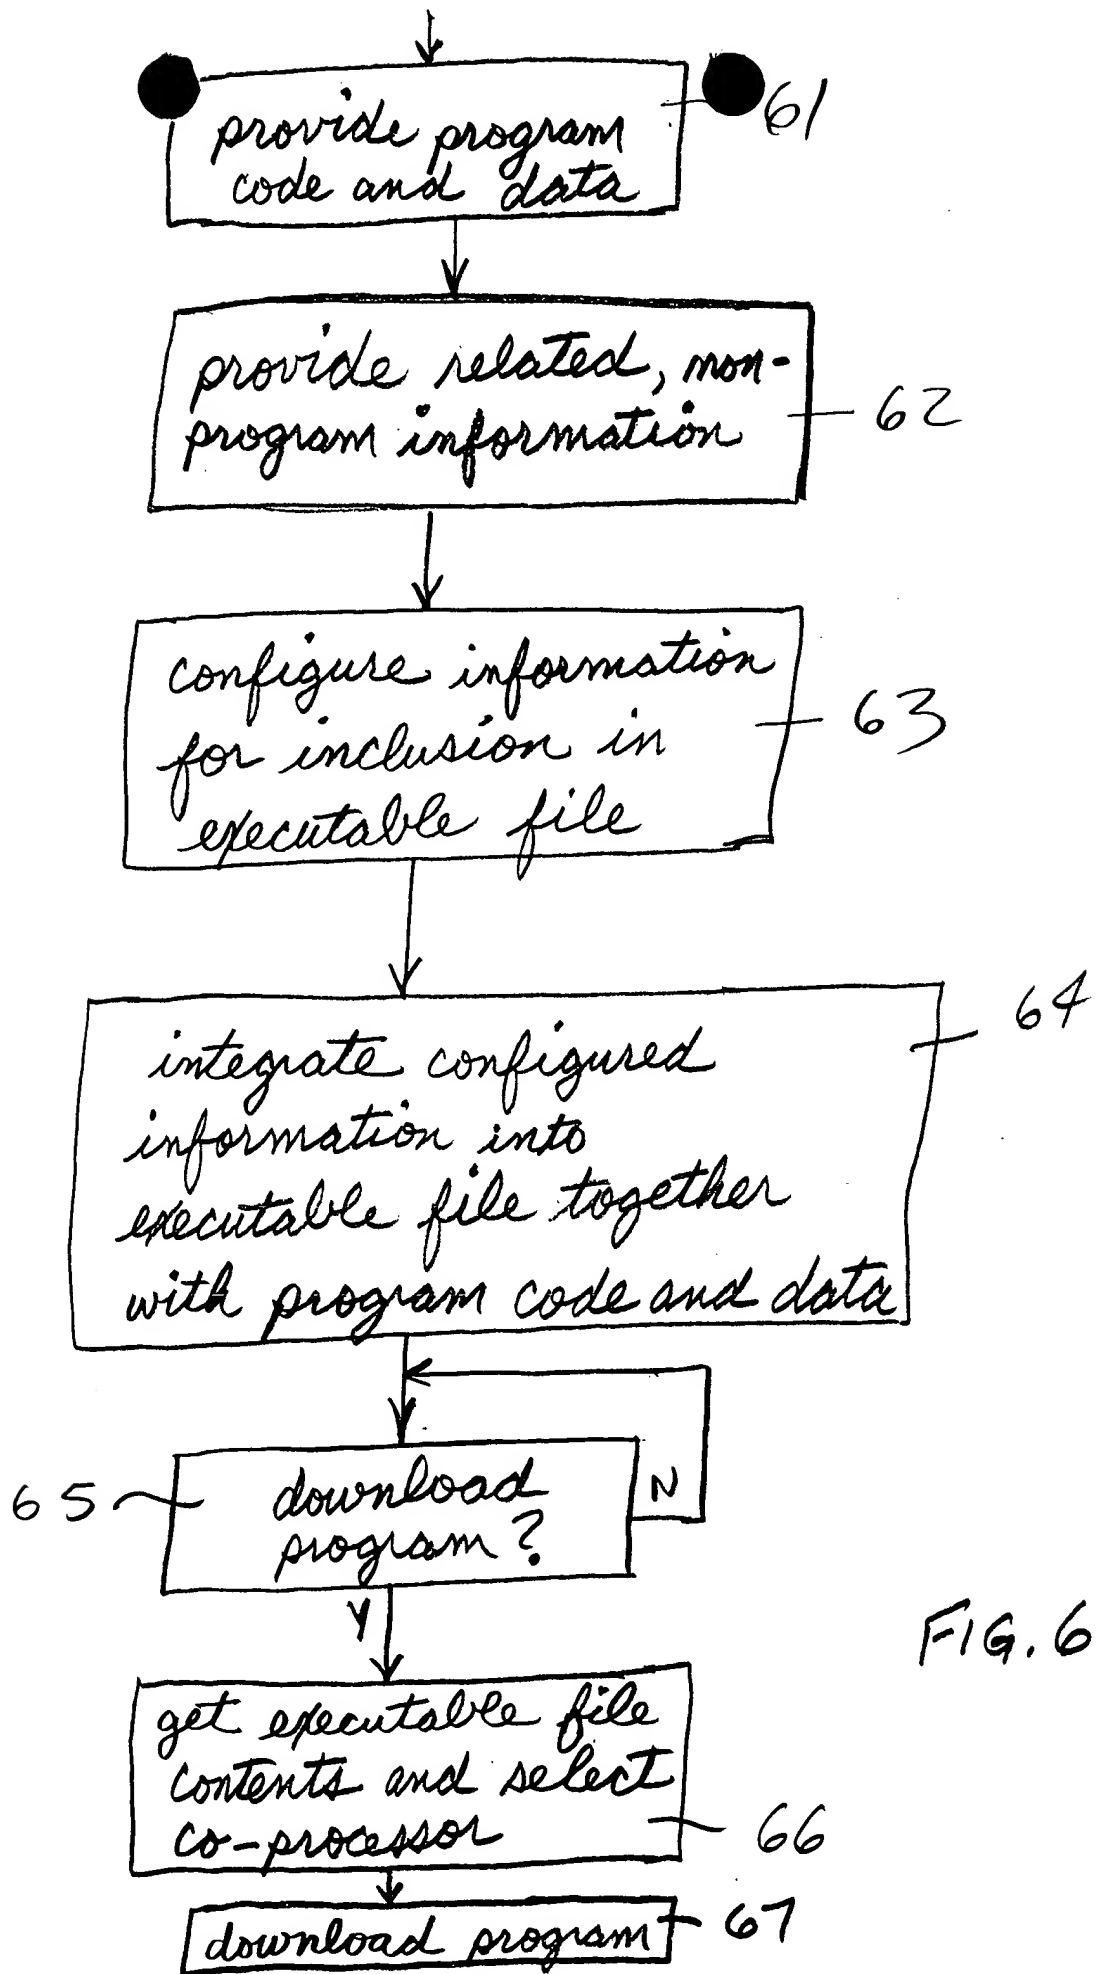 provide program
code and data
61
provide related, non-
program information
62
configure information
for inclusion in
executable file
63
integrate configured
information into
executable file together
with program code and data
64
65
download
program?
N
Y
get executable file
contents and select
co-processor
66
download program
67
FIG. 6